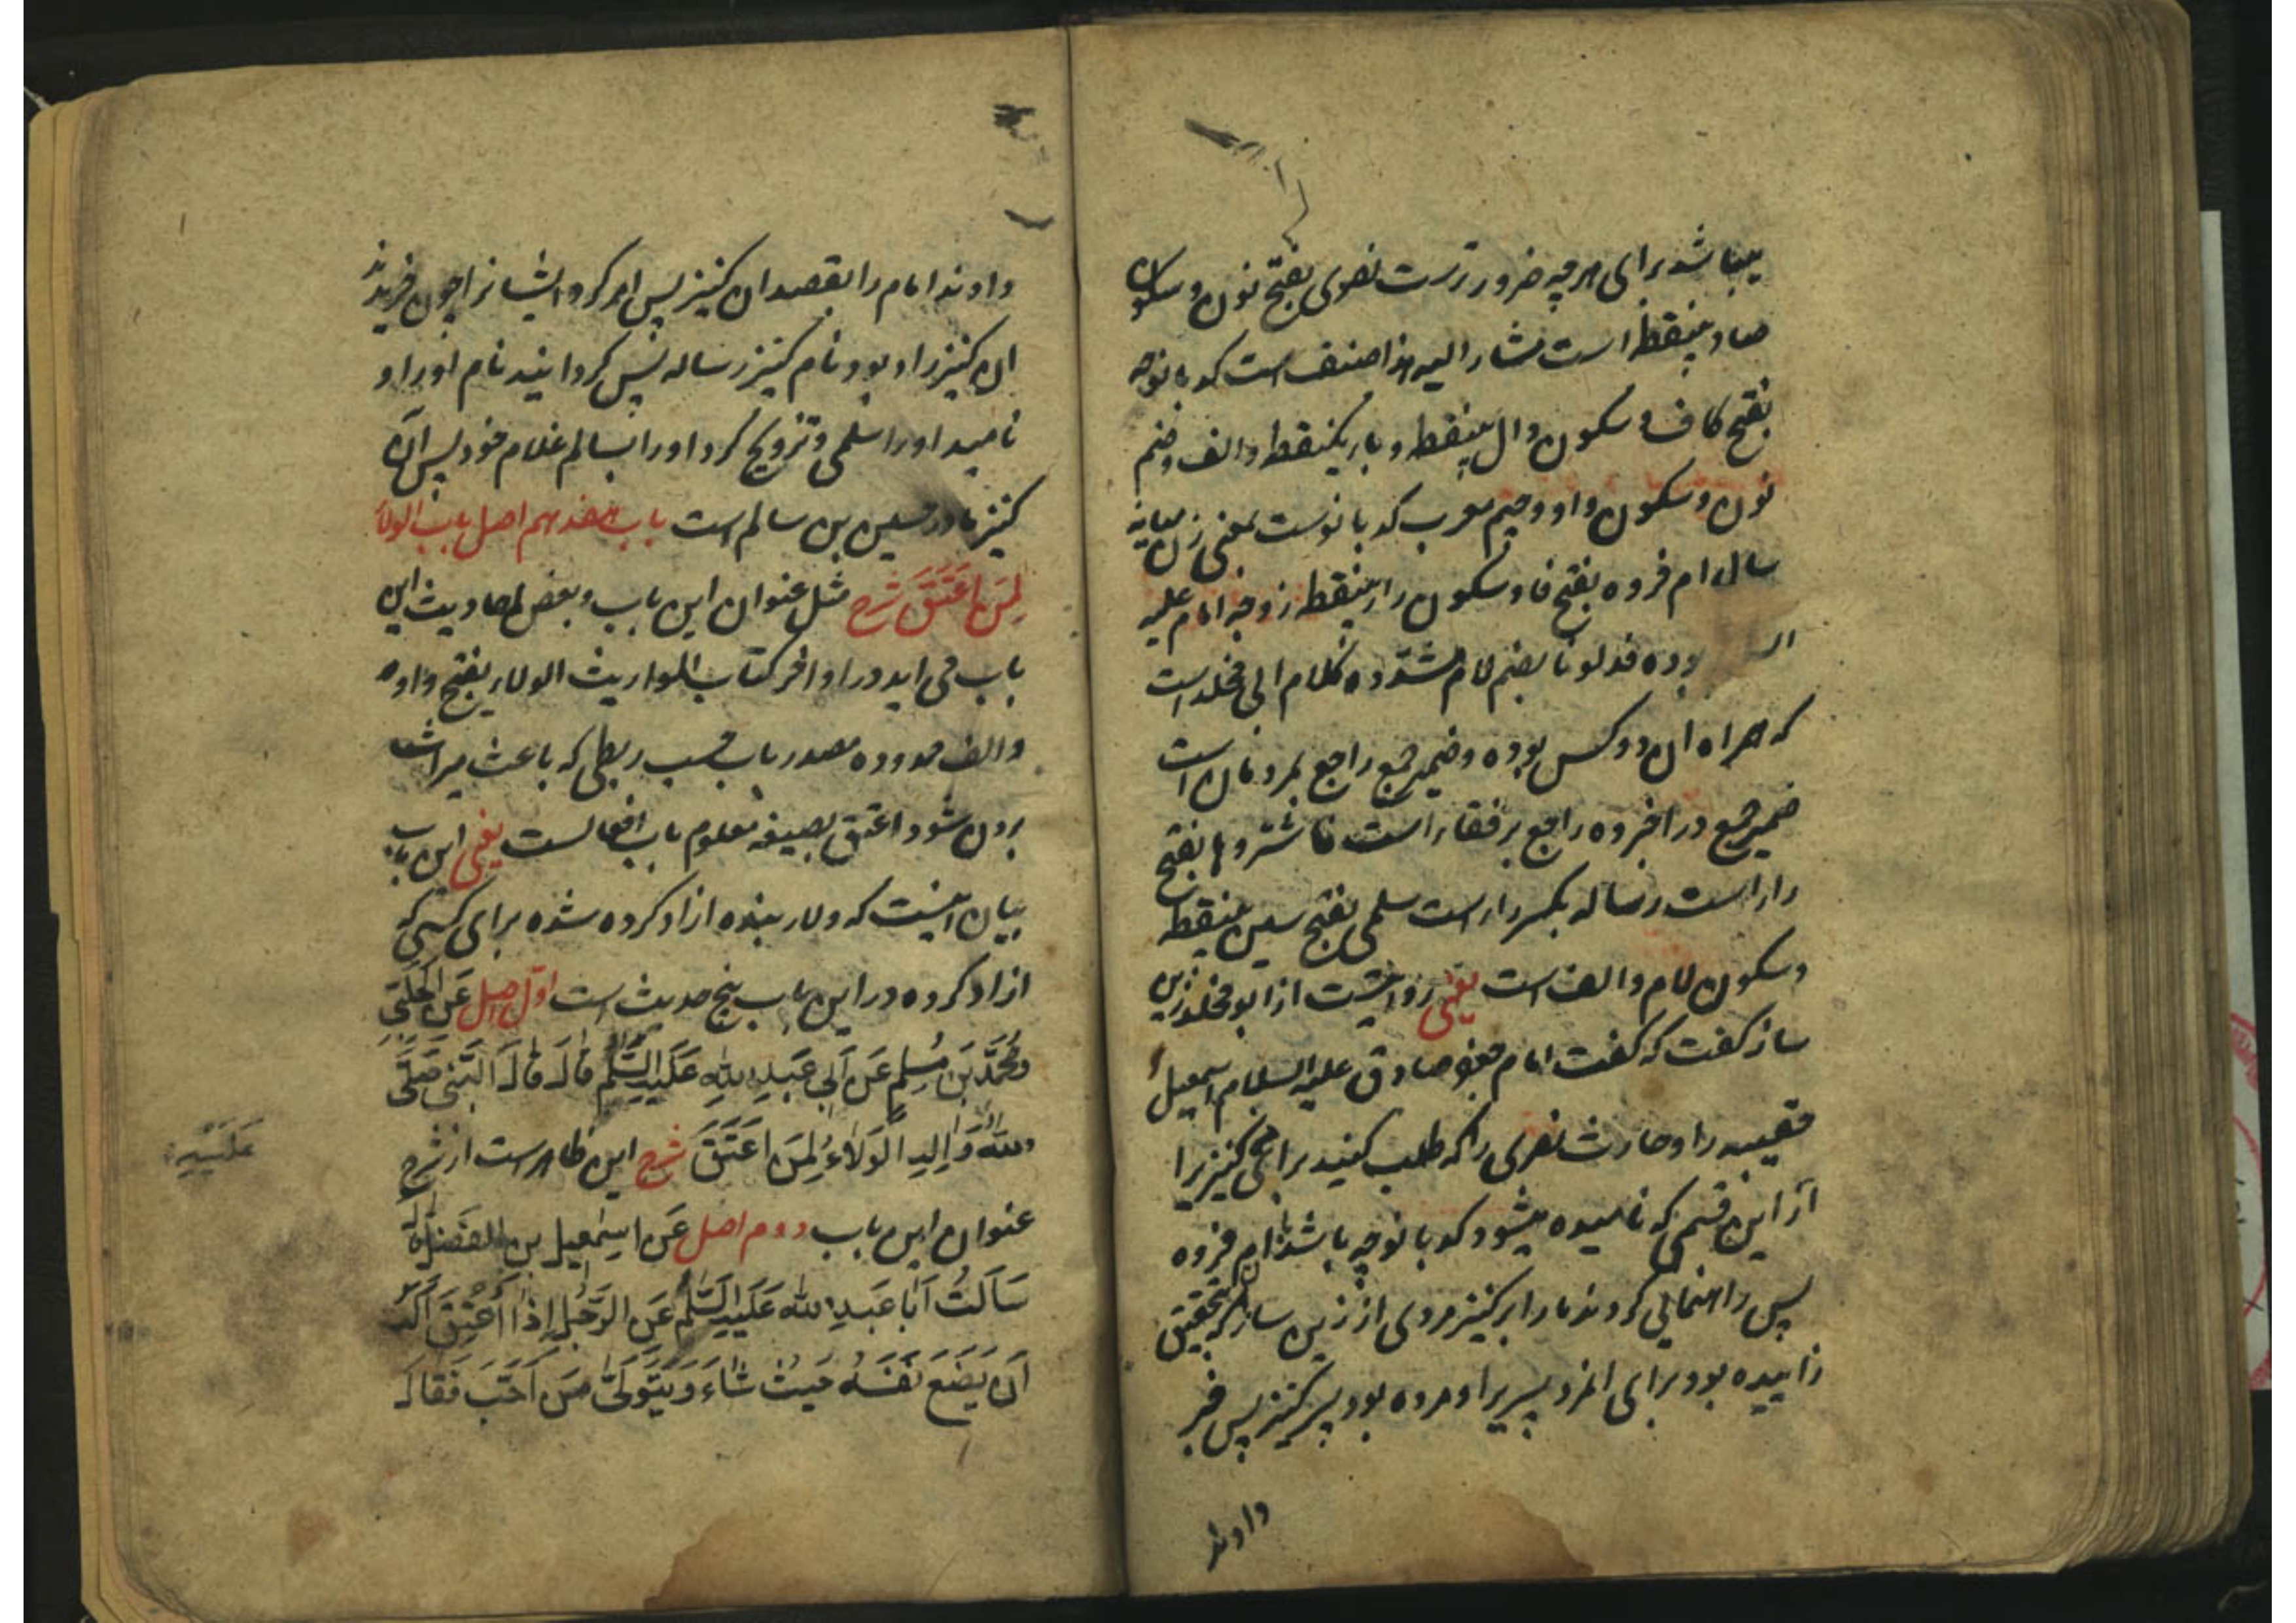 میباشد برای هر چه ضرورترست نصری بفتح نون و سکون
صاد بینقطه است مشار الیه هذا صنف است کدبانوجه
بفتح کاف و سکون دال بینقطه و باء یکنقطه و الف و ضم
نون و سکون واو و جیم معرب کدبانوست بمعنی زن میانه
سال ام فروه بفتح فا و سکون راء بینقطه زوجه امام علیه
بوده فدلونا بضم لام مشدده کلام ابی مخلد است
که همراه آن دو کس بوده و ضمیر جمع راجع بمردمان است
ضمیر جمع در اخبروه راجع برفقاء است فاشتروها بفتح
راء است رساله بکسر راء است سلمی بفتح سین بینقطه
و سکون لام و الف است یعنی روایتست از ابو مخلد زین
ساز گفت که گفت امام جعفر صادق علیه السلام اسمعیل
قصیبه را و حارث نصری را که طلب کنید برای من کنیزیرا
از این قسمی که نامیده میشود کدبانوجه باشد با ام فروه
پس راهنمایی کردند ما را بر کنیز مردی از زین سازان بتحقیق
زاییده بود برای انمرد پسریرا و مرده بود پسر کنیز پس خبر
دادند
دادند امام را بقصه ان کنیز پس امر کرد ایشانرا چون خریدند
ان کنیز را و بود نام کنیز رساله پس گردانید نام او را و
نامید او را سلمی و تزویج کرد او را بسالم غلام خود پس آن
کنیز مادر حسین بن سالم است باب هفدهم اصل باب الولاء
لِمَن اَعْتَقَ شرح مثل عنوان این باب و بعض احادیث این
باب می اید در اواخر کتاب المواریث الولاء بفتح واو
و الف ممدوده مصدر باب حسب ربطی که باعث میراث
بردن شود اعتق بصیغه معلوم باب افعالست یعنی این باب
بیان اینست که ولاء بنده ازاد کرده شده برای کسی که
ازاد کرده در این باب پنج حدیث است اوّل اصل عَنِ الْحَلَبِیّ
وَمُحَمَّدِ بْنِ مُسْلِمٍ عَن اَبِی عَبدِ اللهِ عَلَیهِ السَّلٰم قَالَ قَالَ النَّبِی صَلَّی
الله عَلَیْهِ
اللهُ وَآلِهِ الْوَلَاءُ لِمَن اَعْتَقَ شرح این ظاهرست از شرح
عنوان این باب دوم اصل عَن اِسْمٰعِیل بن الفَضْل قَالَ
سَاَلْتُ اَبَا عَبدِ الله عَلَیهِ السَّلٰم عَنِ الرَّجُلِ اِذَا اُعْتِقَ اَلَهُ
اَن یَضَعَ نَفْسَهُ حَیْثُ شَاءَ وَیَتَوَلَّی مَن اَحَبَّ فَقَالَ